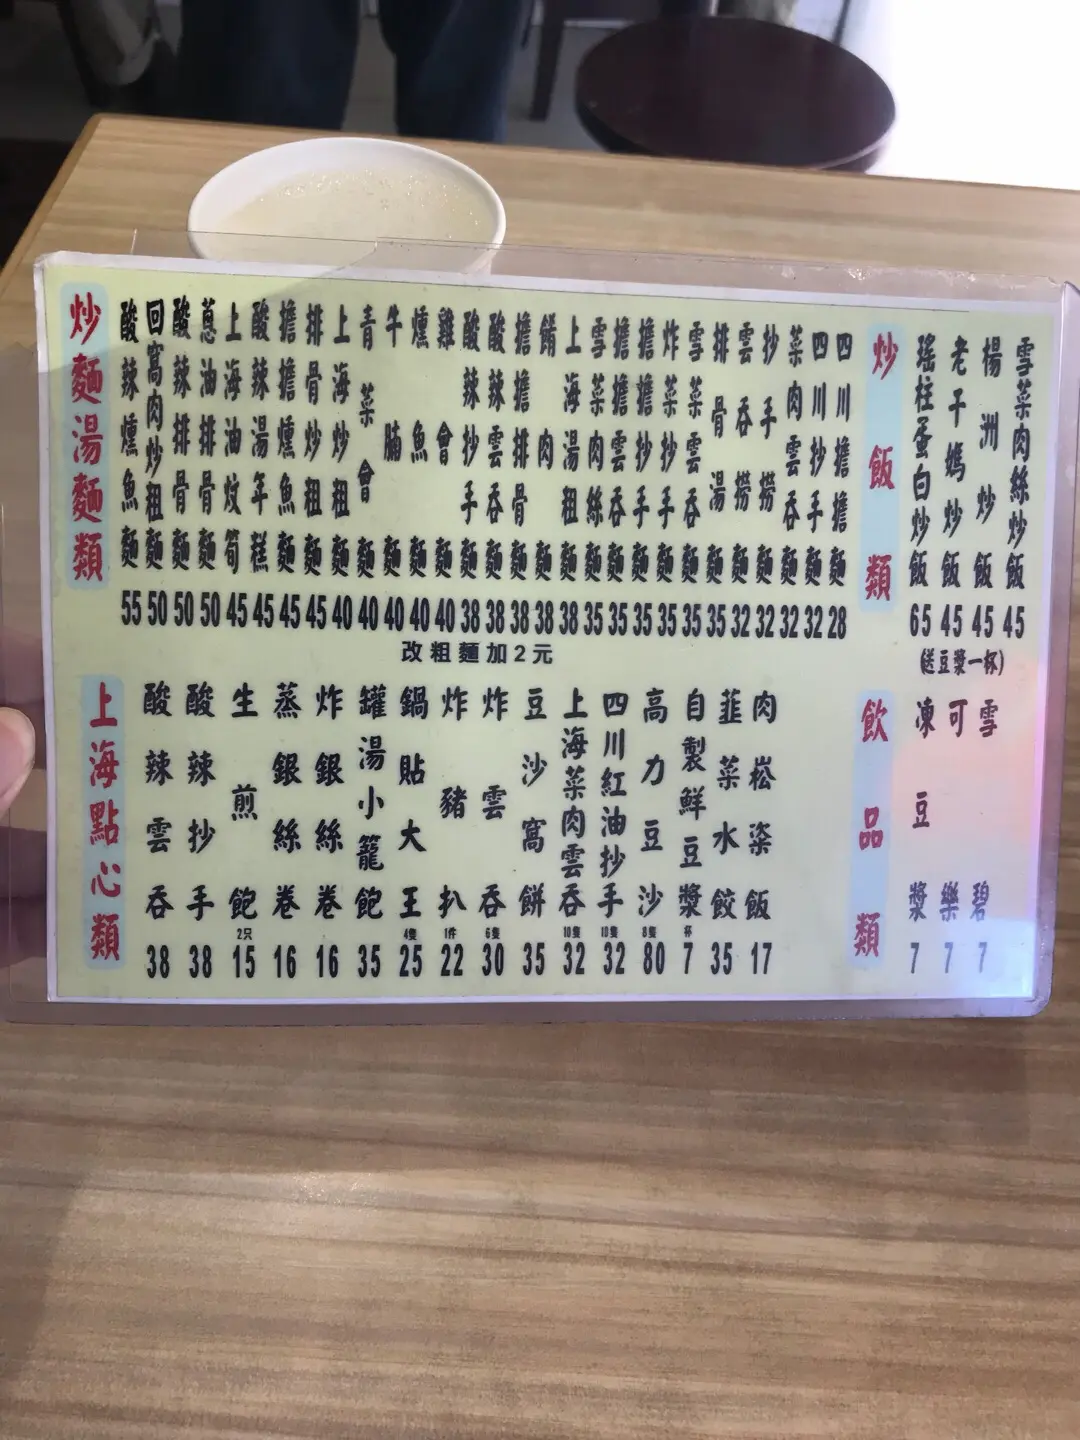 炒麵湯麵類
酸辣燻魚麵 55
回窩肉炒粗麵 50
酸辣排骨麵 50
蔥油排骨麵 50
上海油炆筍 45
酸辣湯年糕 45
擔擔燻魚麵 45
排骨炒粗麵 45
上海炒粗麵 40
青菜會麵 40
牛腩麵 40
燻魚麵 40
雞會麵 40
酸辣抄手麵 38
酸辣雲吞麵 38
擔擔排骨麵 38
餚肉麵 38
上海湯粗麵 38
雪菜肉絲麵 35
擔擔雲吞麵 35
擔擔抄手麵 35
炸菜抄手麵 35
雪菜雲吞麵 35
排骨湯麵 35
雲吞撈麵 32
抄手撈麵 32
菜肉雲吞麵 32
四川抄手麵 32
四川擔擔麵 28
改粗麵加2元
炒飯類
瑤柱蛋白炒飯 65
老干媽炒飯 45
楊洲炒飯 45
雪菜肉絲炒飯 45
(送豆漿一杯)
上海點心類
酸辣雲吞 38
酸辣抄手 38
生煎飽 2只 15
蒸銀絲卷 16
炸銀絲卷 16
罐湯小籠飽 35
鍋貼大王 4隻 25
炸豬扒 1件 22
炸雲吞 6隻 30
豆沙窩餅 35
上海菜肉雲吞 10隻 32
四川紅油抄手 10隻 32
高力豆沙 8隻 80
自製鮮豆漿 杯 7
韮菜水餃 35
肉崧粢飯 17
飲品類
凍豆漿 7
可樂 7
雪碧 7